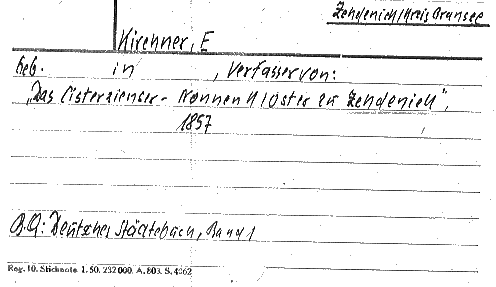 Zehdenick/Kreis Gransee
Kirchner, E
geb. in , Verfasser von:
"Das Cisterzienser-Nonnenkloster zu Zehdenick",
1857
B.Q: Deutsches Städtebuch, Band 1
Reg. 10. Stichnote 1. 50. 232000. A. 803. S. 4062